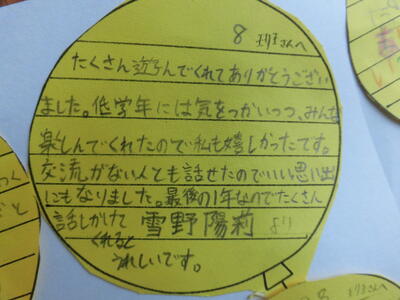 8 さんへ
たくさん遊んでくれてありがとうござい
ました。低学年には気をつかいつつ、みんな
楽しんでくれたので私も嬉しかったです。
交流がない人とも話せたのでいい思い出
にもなりました。最後の1年なのでたくさん
話しかけて
くれると
うれしいです。
雪野陽莉 より